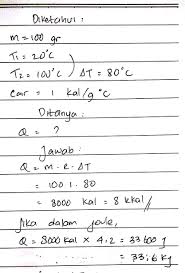 Diketahui :
m = 100 gr
T₁ = 20°C
T₂ = 100°C ) ΔT = 80°C
Cair = 1 kal/g °C
Ditanya :
Q = ?
Jawab :
Q = m . c . ΔT
= 100 . 1 . 80
= 8000 kal = 8 kkal //
Jika dalam joule,
Q = 8000 kal × 4,2 = 33600 J
= 33,6 kJ